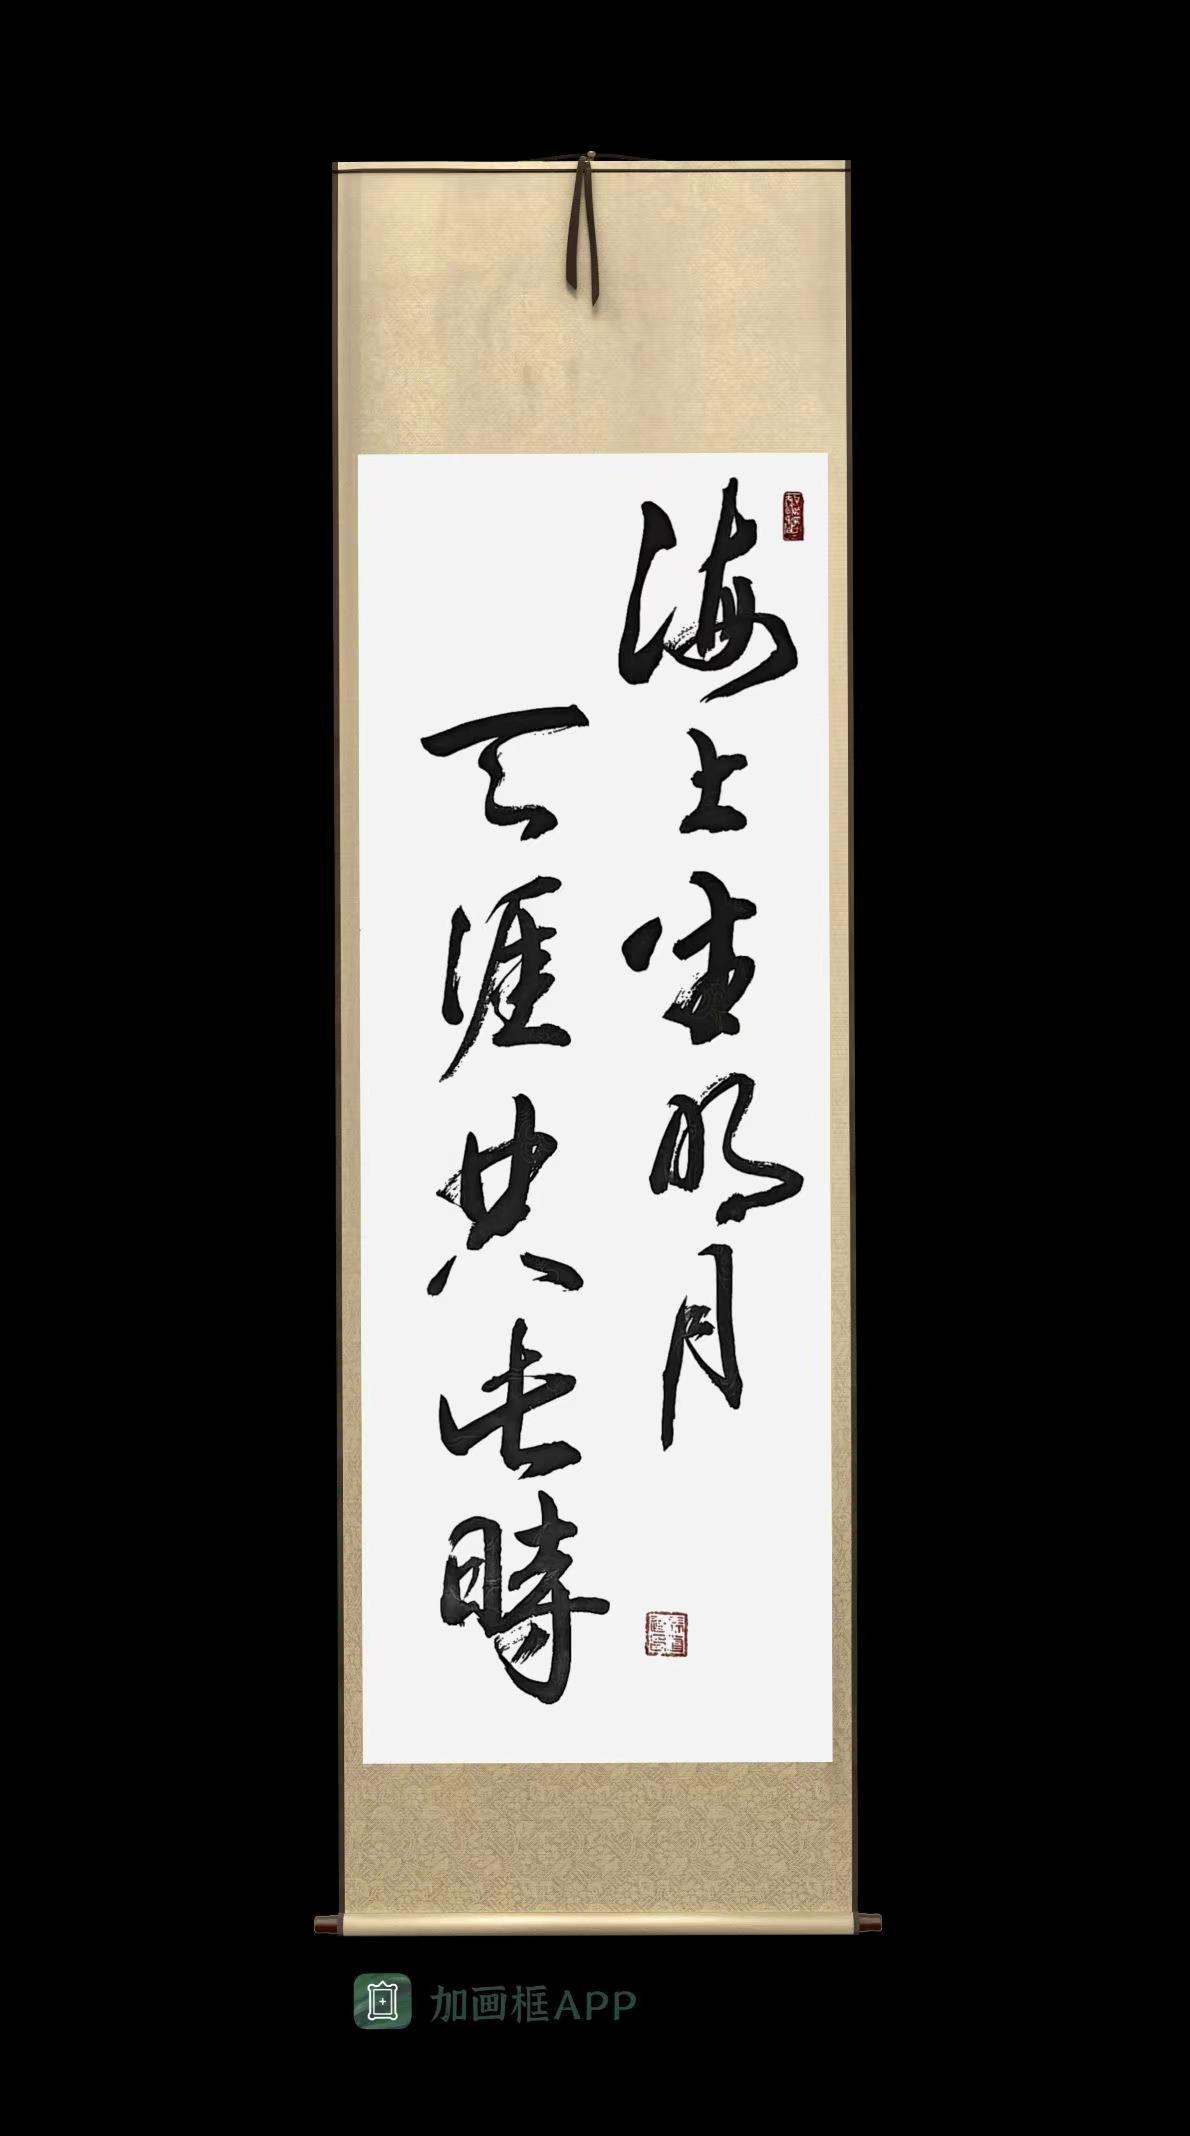 海上生明月
天涯共此時
加画框APP